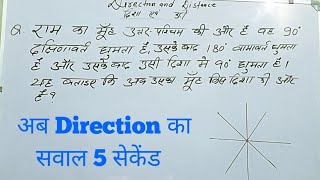 Direction and Distance
दिशा एवं दूरी
Q. राम का मुँह उत्तर-पश्चिम की ओर है वह 90°
दक्षिणावर्त घुमता है, उसके बाद 180° वामावर्त घुमता
है और उसके बाद उसी दिशा में 90° घुमता है।
यह बताइए कि अब उसका मुँह किस दिशा की ओर
है?
अब Direction का
सवाल 5 सेकेंड